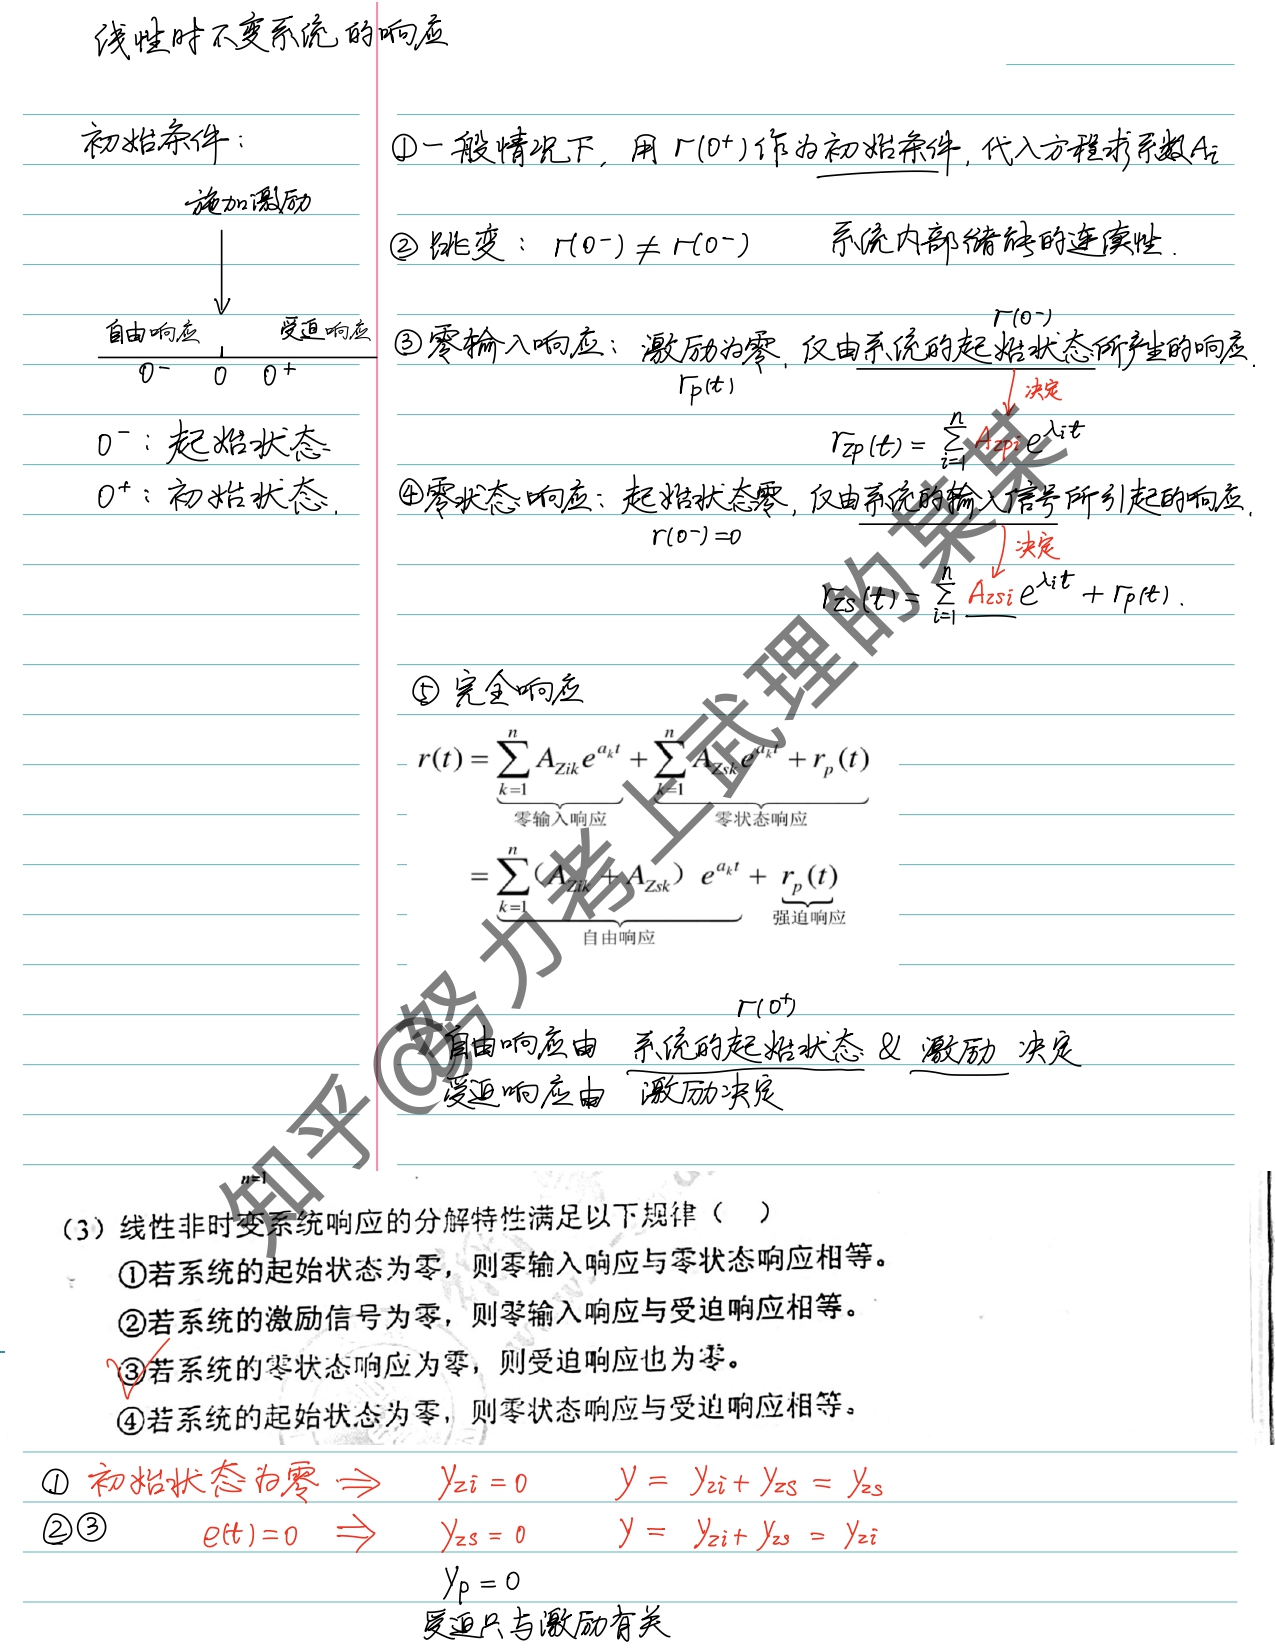 线性时不变系统的响应
初始条件：
施加激励
自由响应 受迫响应
0⁻ 0 0⁺
0⁻：起始状态
0⁺：初始状态.
①一般情况下，用 r(0⁺)作为初始条件，代入方程求系数Ai
②跳变：r(0⁻) ≠ r(0⁻) 系统内部储能的连续性.
r(0⁻)
③零输入响应：激励为零，仅由系统的起始状态所产生的响应.
rp(t)
决定
rzp(t) = ∑ᵢ₌₁ⁿ Azpi e^λit
④零状态响应：起始状态零，仅由系统的输入信号所引起的响应.
r(0⁻)=0
决定
rzs(t) = ∑ᵢ₌₁ⁿ Azsi e^λit + rp(t).
⑤ 完全响应
r(t) = ∑ₖ₌₁ⁿ A_Zik e^{a_k t} + ∑ₖ₌₁ⁿ A_Zsk e^{a_k t} + r_p(t)
零输入响应 零状态响应
= ∑ₖ₌₁ⁿ (A_Zik + A_Zsk) e^{a_k t} + r_p(t)
自由响应 强迫响应
r(0⁺)
自由响应由 系统的起始状态 & 激励 决定
受迫响应由 激励决定
知乎 @努力考上武理的某某
n=1
（3）线性非时变系统响应的分解特性满足以下规律（ ）
①若系统的起始状态为零，则零输入响应与零状态响应相等。
②若系统的激励信号为零，则零输入响应与受迫响应相等。
③若系统的零状态响应为零，则受迫响应也为零。
④若系统的起始状态为零，则零状态响应与受迫响应相等。
① 初始状态为零 ⇒ yzi = 0 y = yzi + yzs = yzs
②③ e(t)=0 ⇒ yzs = 0 y = yzi + yzs = yzi
yp = 0
受迫只与激励有关